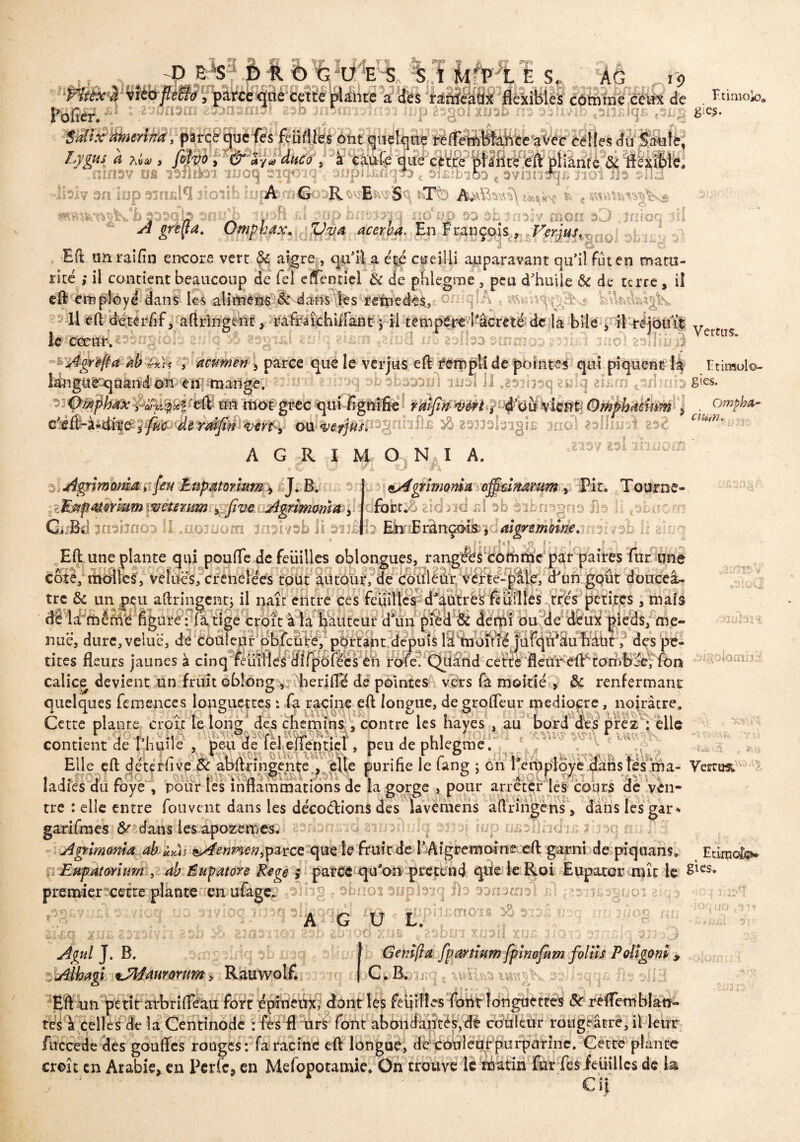 DES DROGUES SIMPLES. AG 19
Vitex à vieo flecto, parce que cette plante a des rameaux flexibles comme ceux de
l'osier.
Etimolo-
gies.
Salix amerina, parce que ses feüilles ont quelque ressemblance avec celles du Saule,
Lygus à λύω, solvo, & ἄγω duco, à cause que cette plante est pliante & flexible.
AGRESTA
A gresta. Omphax. Uva acerba. En François, Verjus.
Est un raisin encore vert & aigre, qu'il a été cueilli auparavant qu'il fût en matu-
rité ; il contient beaucoup de sel essentiel & de phlegme, peu d'huile & de terre, il
est employé dans les alimens & dans les remedes.
Il est détersif, astringent, rafraîchissant ; il tempere l'acreté de la bile, il réjouït
le cœur.
Vertus.
Agresta ab
acumen, parce que le verjus est rempli de pointes qui piquent la
langue quand on en mange.
Etimolo-
gies.
Omphax,
est un mot grec qui signifie raisin vert, d'où vient Omphacium,
c'est-à-dire, suc de raisin vert, ou verjus.
Ompha-
cium.
AGRIMONIA.
Agrimonia, seu Eupatorium, J. B.
Eupatorium veterum, sive Agrimonia,
G. B.
Agrimonia officinarum, Pit. Tourne-
fort.
En François, aigremoine.
Est une plante qui pousse de feüilles oblongues, rangées comme par paires sur une
côte, molles, veluës, crenelées tout autour, de couleur verte-pâle, d'un goût doucea-
tre & un peu astringent; il naît entre ces feüilles d'autres feüilles trés petites, mais
de la même figure : sa tige croît à la hauteur d'un pied & demi ou de deux pieds, me-
nuë, dure, veluë, de couleur obscure, portant depuis la moitié jusqu'au haut, des pe-
tites fleurs jaunes à cinq feüilles disposées en rose. Quand cette fleur est tombée, son
calice devient un fruit oblong, herissé de pointes vers sa moitié, & renfermant
quelques semences longuettes : sa racine est longue, de grosseur mediocre, noirâtre.
Cette plante croît le long des chemins, contre les hayes, au bord des prez : elle
contient de l'huile, peu de sel essentiel, peu de phlegme.
Elle est détersive & abstringente, elle purifie le sang ; on l'employe dans les ma-
ladies du foye, pour les inflammations de la gorge, pour arrêter les cours de ven-
tre : elle entre souvent dans les décoctions des lavemens astringens, dans les gar-
garismes & dans les apozemes.
Vertus.
Agrimonia ab
parce que le fruit de l'Aigremoine est garni de piquans.
Eupatorium, ab Eupatore Rege ; parce qu'on pretend que le Roi Eupator mit le
premier cette plante en usage.
Etimolo-
gies.
AGUL.
Agul J. B.
Alhagi Maurorum, Rauwolf.
Genista spartium spinosum foliis Poligoni,
C. B.
Est un petit arbrisseau fort épineux, dont les feüilles sont longuettes & ressemblan-
tes à celles de la Centinode : ses fleurs sont abondantes, de couleur rougeâtre, il leur
succede des gousses rouges : sa racine est longue, de couleur purpurine. Cette plante
croît en Arabie, en Perse, en Mesopotamie. On trouve le matin sur ses feüilles de la
C ij